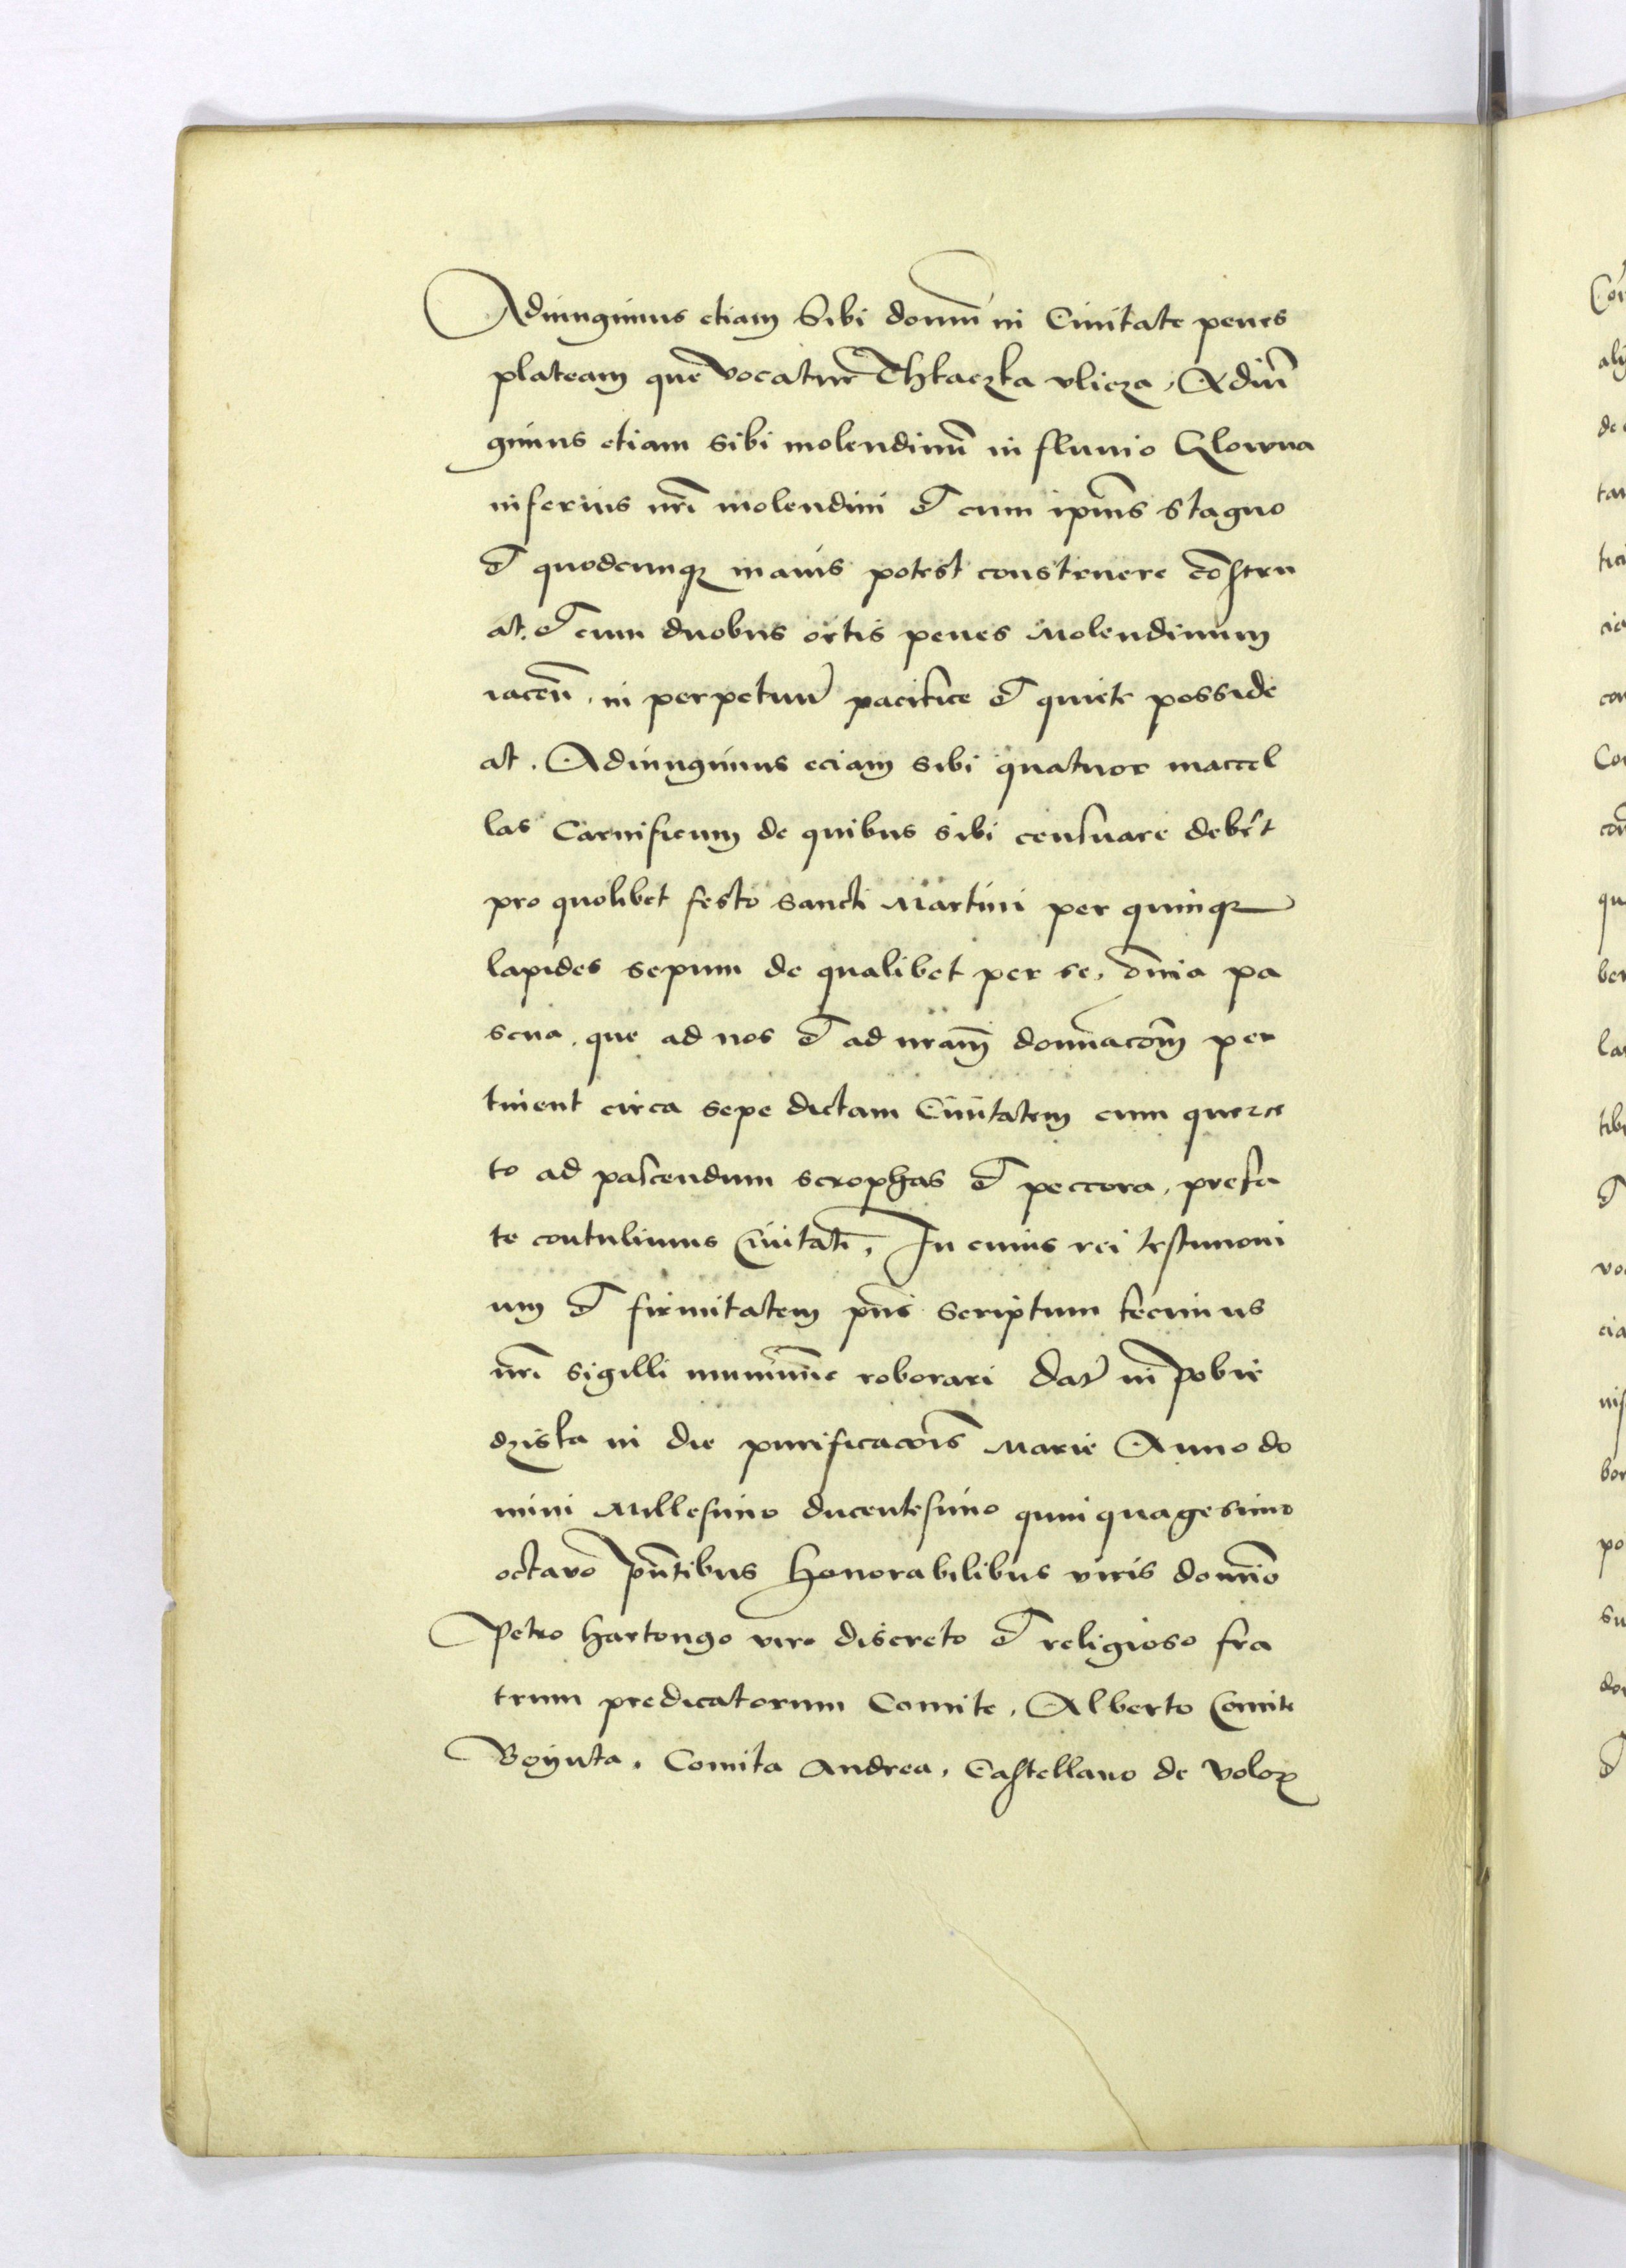 Adiungimus etiam sibi domū in Ciuitate penes
plateam que vocatur Thkaczka vlicza, Adiū
gimus etiam sibi molendinū in fluuio Glowna
inferius nrī molendini et cum ipīus stagno
et quodcunqz maius potest construere cōstru
at. et cum duobus ortis penes Molendinum
iaceñ. in perpetuū pacifice et quiete posside
at. Adiungimus eciam sibi quatuor maccel
las Carnificum de quibus sibi censuare debēt
pro quolibet festo sancti Martini per quinqz
lapides sepum de qualibet per se, om̄ia pa
scua, que ad nos et ad nram̄ dominacōm̄ per
tinent circa sepe dictam Ciuitatem cum querce
to ad pascendum scrophas et peccora, prefa
te contulimus Ciuitati, In cuius rei testimoni
um et firmitatem pn̄s scriptum fecimus
nrī sigilli munimīe roborari dat̄ in pobie
dziska in die purificacōis Marie Anno do
mini Millesimo ducentesimo quinquagesimo
octauo pn̄tibus honorabilibus viris domīo
Petro hartongo viro discreto et religioso fra
trum predicatorum Comite, Alberto Comite
Boguta, Comita Andrea, Castellano de